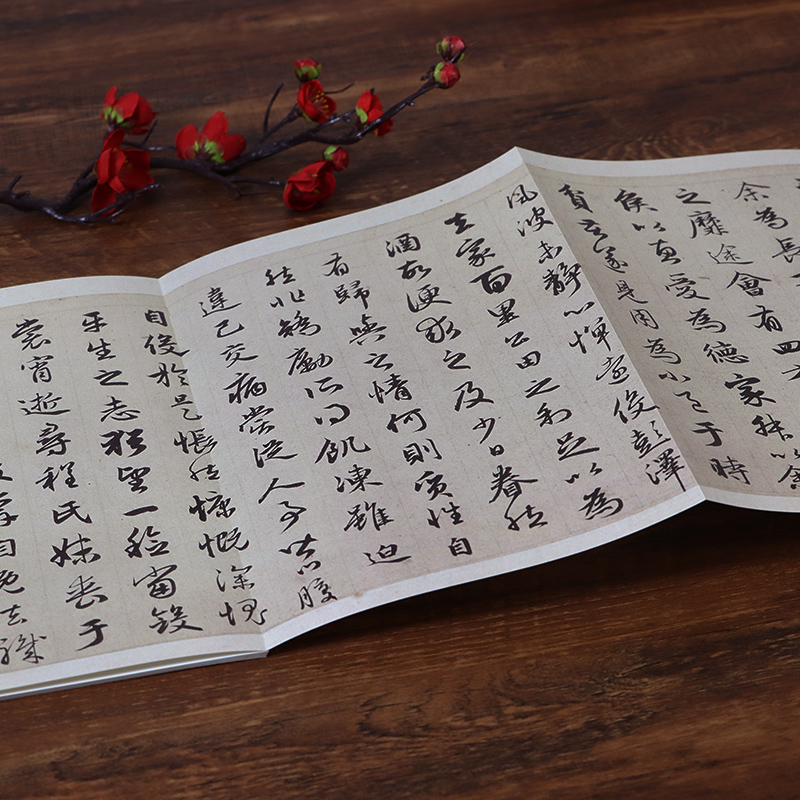 余為長
之靡途會有四方
侯以惠愛為德家叔以余
貧苦遂見用為小邑于時
風波未靜心憚遠役彭澤
去家百里公田之利足以為
酒故便求之及少日眷然
有歸與之情何則質性自
然非矯勵所得飢凍雖迫
違己交病嘗從人事皆口腹
自役於是悵然慷慨深愧
平生之志猶望一稔當斂
裳宵逝尋程氏妹喪于
奔自免去職